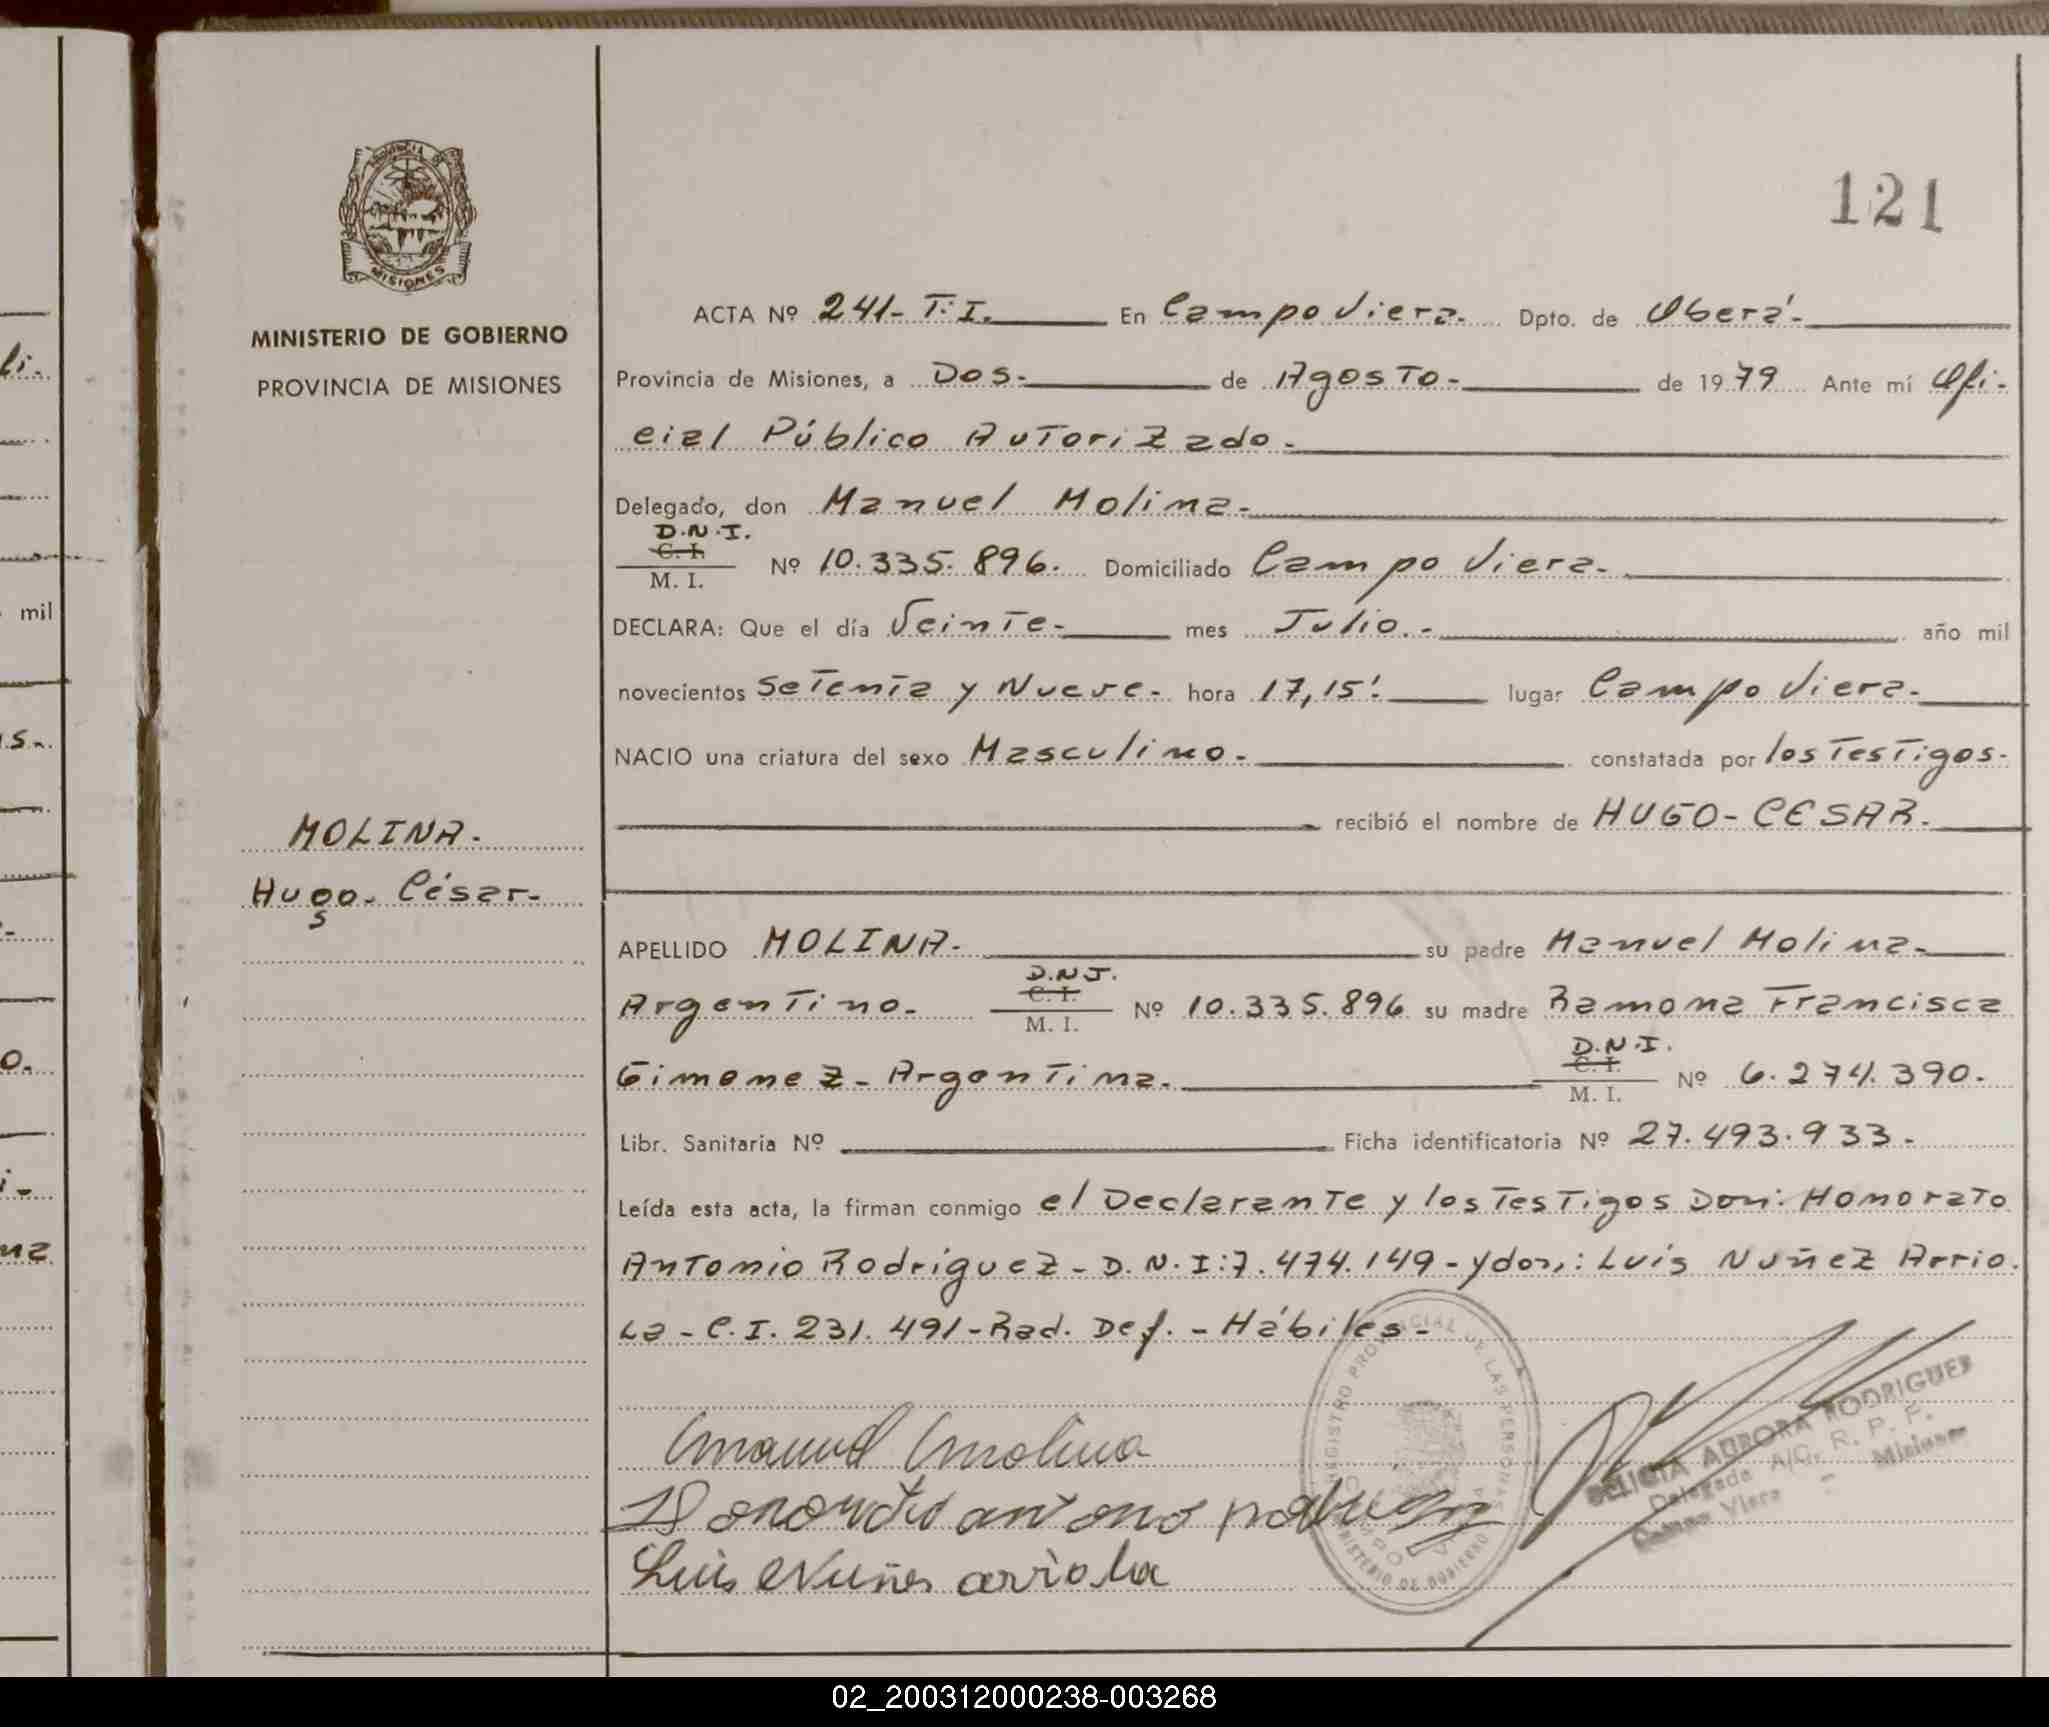 121
PROVINCIA DE
MISIONES
MINISTERIO DE GOBIERNO
PROVINCIA DE MISIONES
ACTA Nº 241- T.I. En Campo Viera. Dpto. de Oberá.
Provincia de Misiones, a Dos. de Agosto. de 1979 Ante mí Ofi-
cial Público Autorizado.
Delegado, don Manuel Molina.
D.N.I.
C. I.
M. I.
Nº 10.335.896. Domiciliado Campo Viera.
DECLARA: Que el día Veinte. mes Julio. año mil
novecientos Setenta y Nueve. hora 17,15'. lugar Campo Viera.
NACIO una criatura del sexo Masculino. constatada por los Testigos.
recibió el nombre de HUGO-CESAR.
MOLINA.
Hugo. César.
APELLIDO MOLINA. su padre Manuel Molina.
D.N.I.
C. I.
M. I.
Argentino. Nº 10.335.896 su madre Ramona Francisca
D.N.I.
C. I.
M. I.
Gimenez - Argentina. Nº 6.274.390.
Libr. Sanitaria Nº Ficha identificatoria Nº 27.493.933.
Leída esta acta, la firman conmigo el Declarante y los Testigos Don: Honorato
Antonio Rodríguez - D.N.I:7.474.149 - y don: Luís Nuñez Arrio.
La - C.I. 231.491 - Rad. Def. - Hábiles.
Manuel Molina
Luis Nuñes arriola
REGISTRO PROVINCIAL DE LAS PERSONAS
MINISTERIO DE GOBIERNO
DELICIA AURORA RODRIGUEZ
Delegada A/C. R. P. P.
Campo Viera - Misiones
mil
02_200312000238-003268